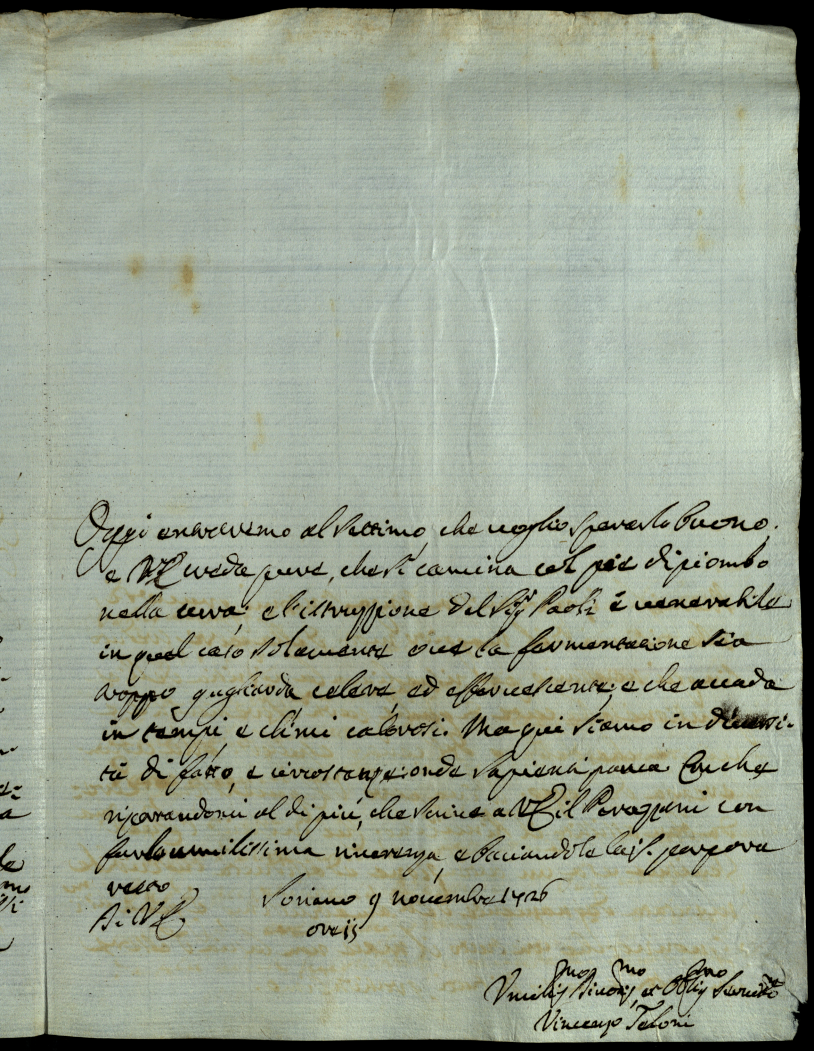 Oggi entraremo al settimo, che voglio sperarlo buono,
e VE creda pure, che si camina col piè di piombo
nella cura; e l'istruzzione del Sig.r Paoli è venerabile
in quel caso solamente ove la fermentazione sia
troppo gagliarda celere, ed effervescente; e che accada
in tempi e climi calorosi. Ma qui siamo in diversi-
tà di fatto, e circostanze; onde sapienti pauca. Con che
riportandomi al di più, che scrive a VE il Peragani con
farle umilissima riverenza, e baciandole la S. porpora
resto
Di VE. Soriano 9 novembre 1726
ore 15
Umilis.mo Divotis.mo et Oblig.mo Servitore
Vincenzo Teloni